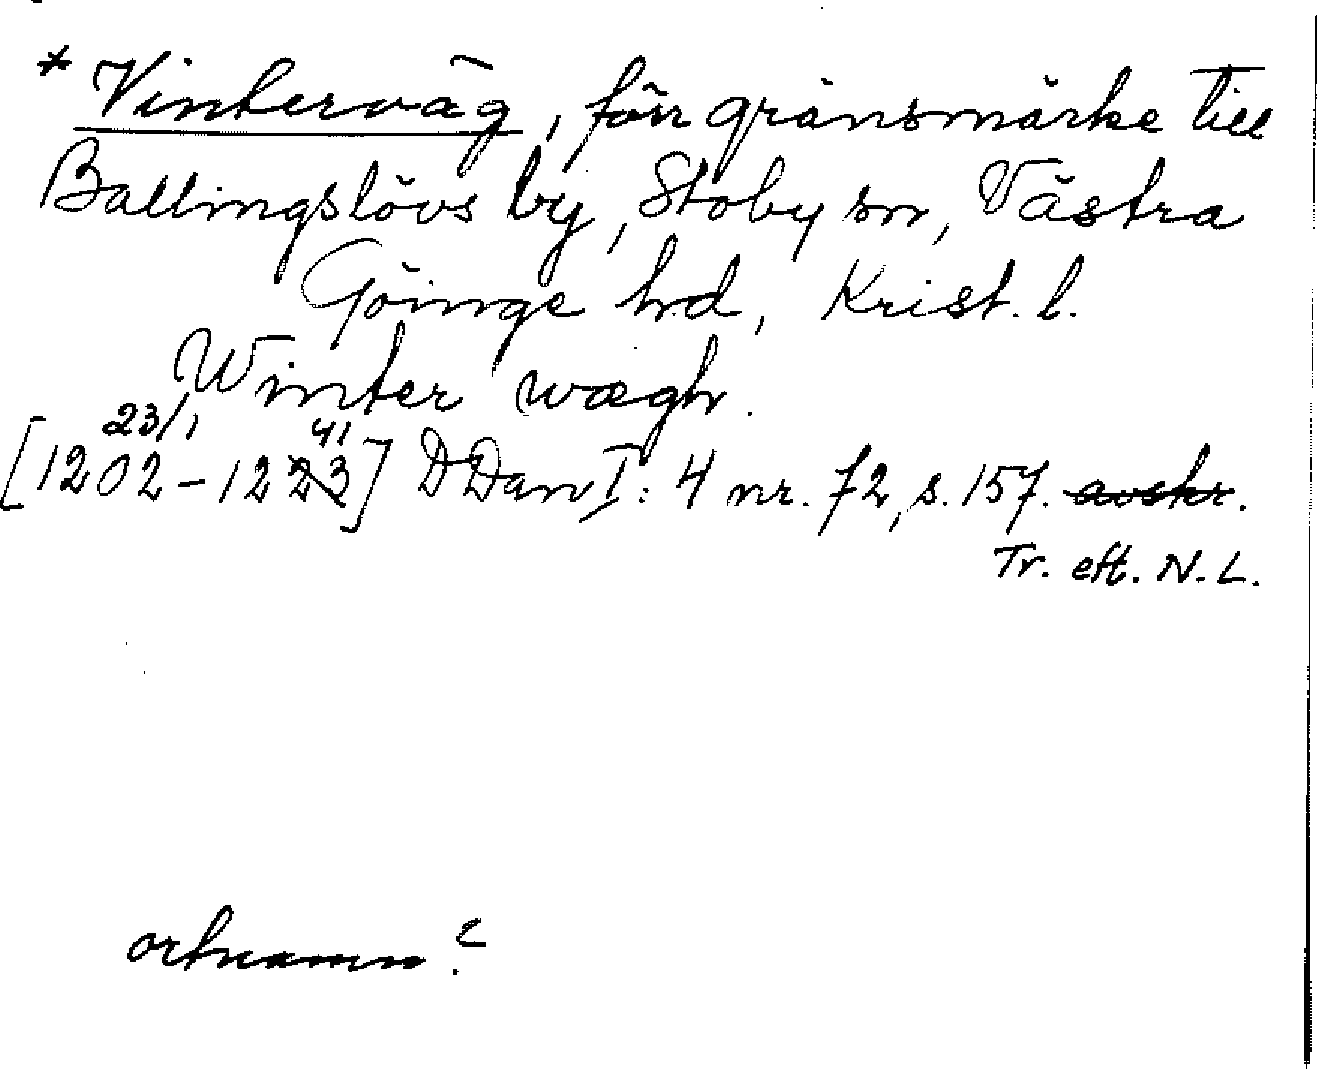 * Vinterväg, förr gränsmärke till
Ballingslövs by, Stoby sn, Västra
Göinge hd, Krist. l.
Winter wægh.
23/1 41
[1202-1223] DDan I: 4 nr. 72, s. 157. avskr.
Tr. eft. N. L.
ortnamn?